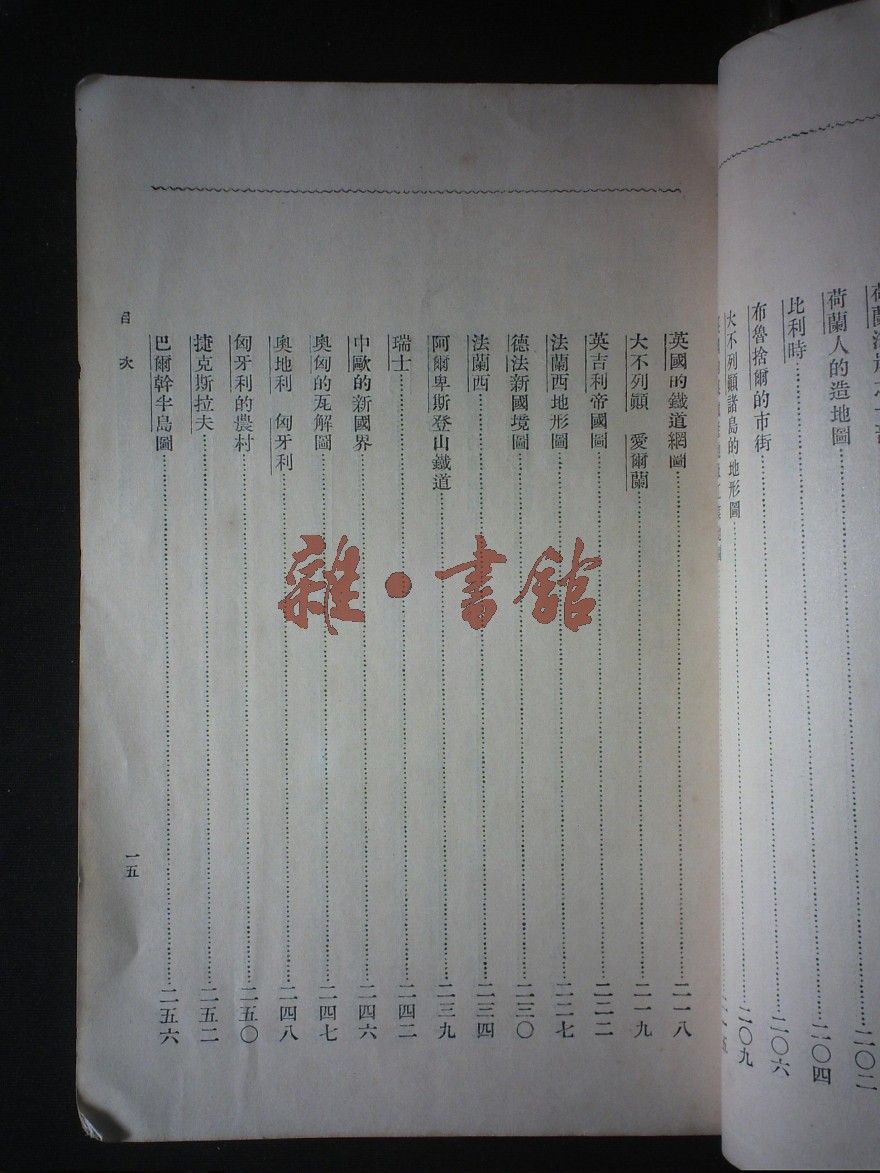 荷蘭人的造地圖……二〇四
比利時……二〇六
布魯捨爾的市街……二〇九
大不列顚諸島的地形圖
英國的鐵道網圖……二一八
大不列顚　愛爾蘭……二一九
英吉利帝國圖……二二二
法蘭西地形圖……二二七
德法新國境圖……二三〇
法蘭西……二三四
阿爾卑斯登山鐵道……二三九
瑞士……二四二
中歐的新國界……二四六
奧匈的瓦解圖……二四七
奧地利　匈牙利……二四八
匈牙利的農村……二五〇
捷克斯拉夫……二五二
巴爾幹半島圖……二五六
目次
一五
雜·書館